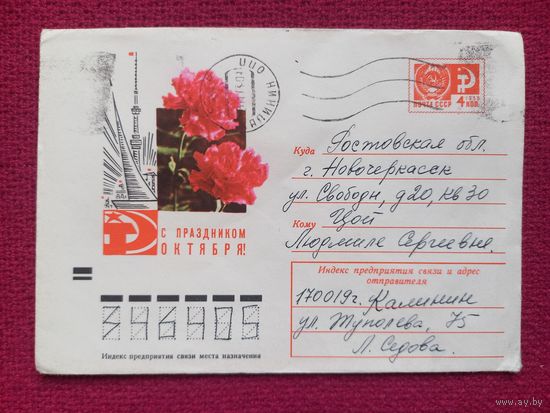 ПОЧТА СССР 4 КОП
С ПРАЗДНИКОМ
ОКТЯБРЯ!
Куда Ростовская обл.
г. Новочеркасск
ул. Свободы, д 20, кв 30
Кому Цой
Людмиле Сергеевне.
Индекс предприятия связи и адрес
отправителя
170019 г. Калинин
ул. Туполева, 75
Л. Седова.
346405
Индекс предприятия связи места назначения
www.ay.by